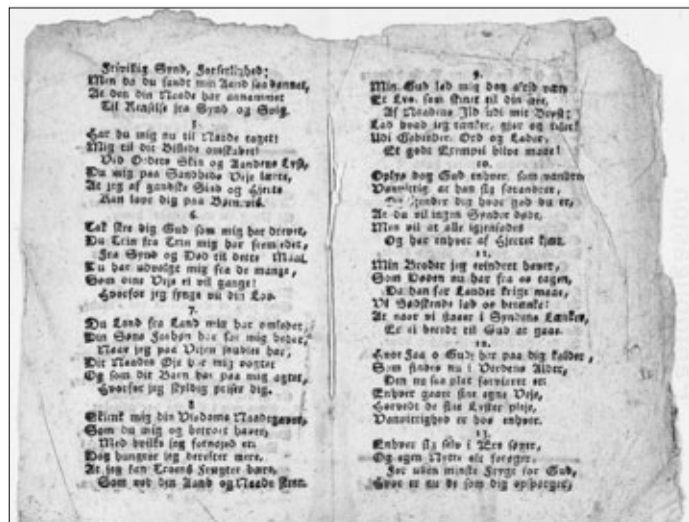 Frivillig Synd, Forfærlighed;
Men da du fandt min Aand saa dannet,
At den din Naade har annammet
Til Renselse fra Synd og Svig.
5.
Har du mig nu til Naade taget!
Mig til dit Billede omskabet!
Ved Ordets Skin og Aandens Lyst,
Du mig paa Sandheds Veje lærte,
At jeg af gandske Sind og Hjerte
Kan love dig paa Børnevis.
6.
Tak skee dig Gud som mig har drevet,
Du Trin fra Trin mig har fremledet,
Fra Synd og Død til dette Maal.
Du har udvalgt mig fra de mange,
Som dine Veje ei vil gange!
Hvorfor jeg synge vil din Lov.
7.
Du Land fra Land mig har omledet,
Din Søns Fodspor har for mig
Naar jeg paa Vejen snublet har,
Dit Naadens Øje har mig vogtet
Og som dit Barn har paa mig agtet,
Hvorfor jeg skyldig priser dig.
8.
Skienk mig din Viisdoms Naadegaver,
Som du mig og betroet haver,
Med hvilke jeg fornøjed er.
Dog hungrer jeg derefter mere,
At jeg kan Troens Frugter bære,
Som ved din Aand og Naade skeer.
9.
Min Gud lad mig dog altid være
Et Lys, som skinner til din Ære,
Af Naadens Ild udi mit Bryst;
Lad hvad jeg tænker, gjør og taler!
Udi Ord og Lader,
Et godt Exempel blive maae!
10.
Oplys dog Gud enhver, som vandrer
Vanvittig, at han sig forandrer,
Og kiender dig hvor god du er,
At du vil ingen Synder døde,
Men vil at alle igienfødes
Og har enhver af Hjertet kjær.
11.
Min Broder jeg erindret haver,
Som Døden nu har fra os tagen,
Da han for Landet krige maae,
Vi Sødskende lad os betænke!
At naar vi staaer i Syndens Lænker,
Er ei beredt til Gud at gaae.
12.
Hvor Faa o Gud! her paa dig kalder,
Som findes nu i Verdens Alder,
Den nu saa plat forvirret er.
Enhver gaaer sine egne Veje,
Hvorvedt de sine Lyster pleje,
Vanvittighed er hos enhver.
13.
Enhver sig selv i Ære søger,
Og egen Nytte alt forøger.
For uden mindste Frygt for Gud,
Hvor er nu de som dig opsørger,